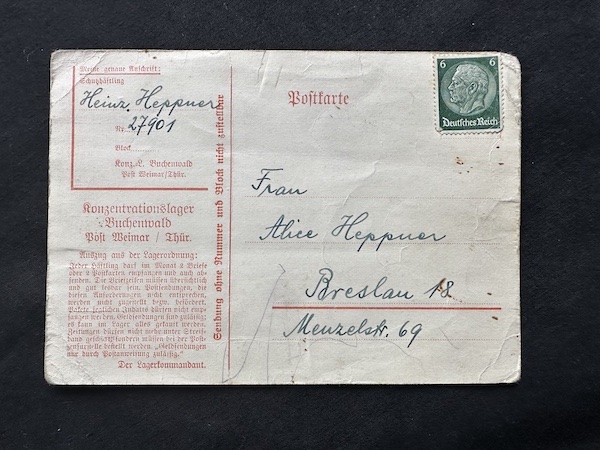 Meine genaue Anschrift:
Schutzhäftling
Heinz Heppner
Nr. 27901
Block
Konz.-L. Buchenwald
Post Weimar/Thür.
Konzentrationslager
Buchenwald
Post Weimar / Thür.
Auszug aus der Lagerordnung:
Jeder Häftling darf im Monat 2 Briefe
oder 2 Postkarten empfangen und auch ab-
senden. Die Briefzeilen müssen übersichtlich
und gut lesbar sein. Postsendungen, die
diesen Anforderungen nicht entsprechen,
werden nicht zugestellt bzw. befördert.
Pakete jeglichen Inhalts dürfen nicht emp-
fangen werden. Geldsendungen sind zulässig;
es kann im Lager alles gekauft werden.
Zeitungen dürfen nicht mehr unter Streif-
band
müssen bei der Post-
bestellt werden. „Geldsendungen
nur durch Postanweisung zulässig.“
Der Lagerkommandant.
Sendung ohne Nummer und Block nicht zustellbar
Postkarte
6 6
Deutsches Reich
Frau
Alice Heppner
Breslau 18
Menzelstr. 69